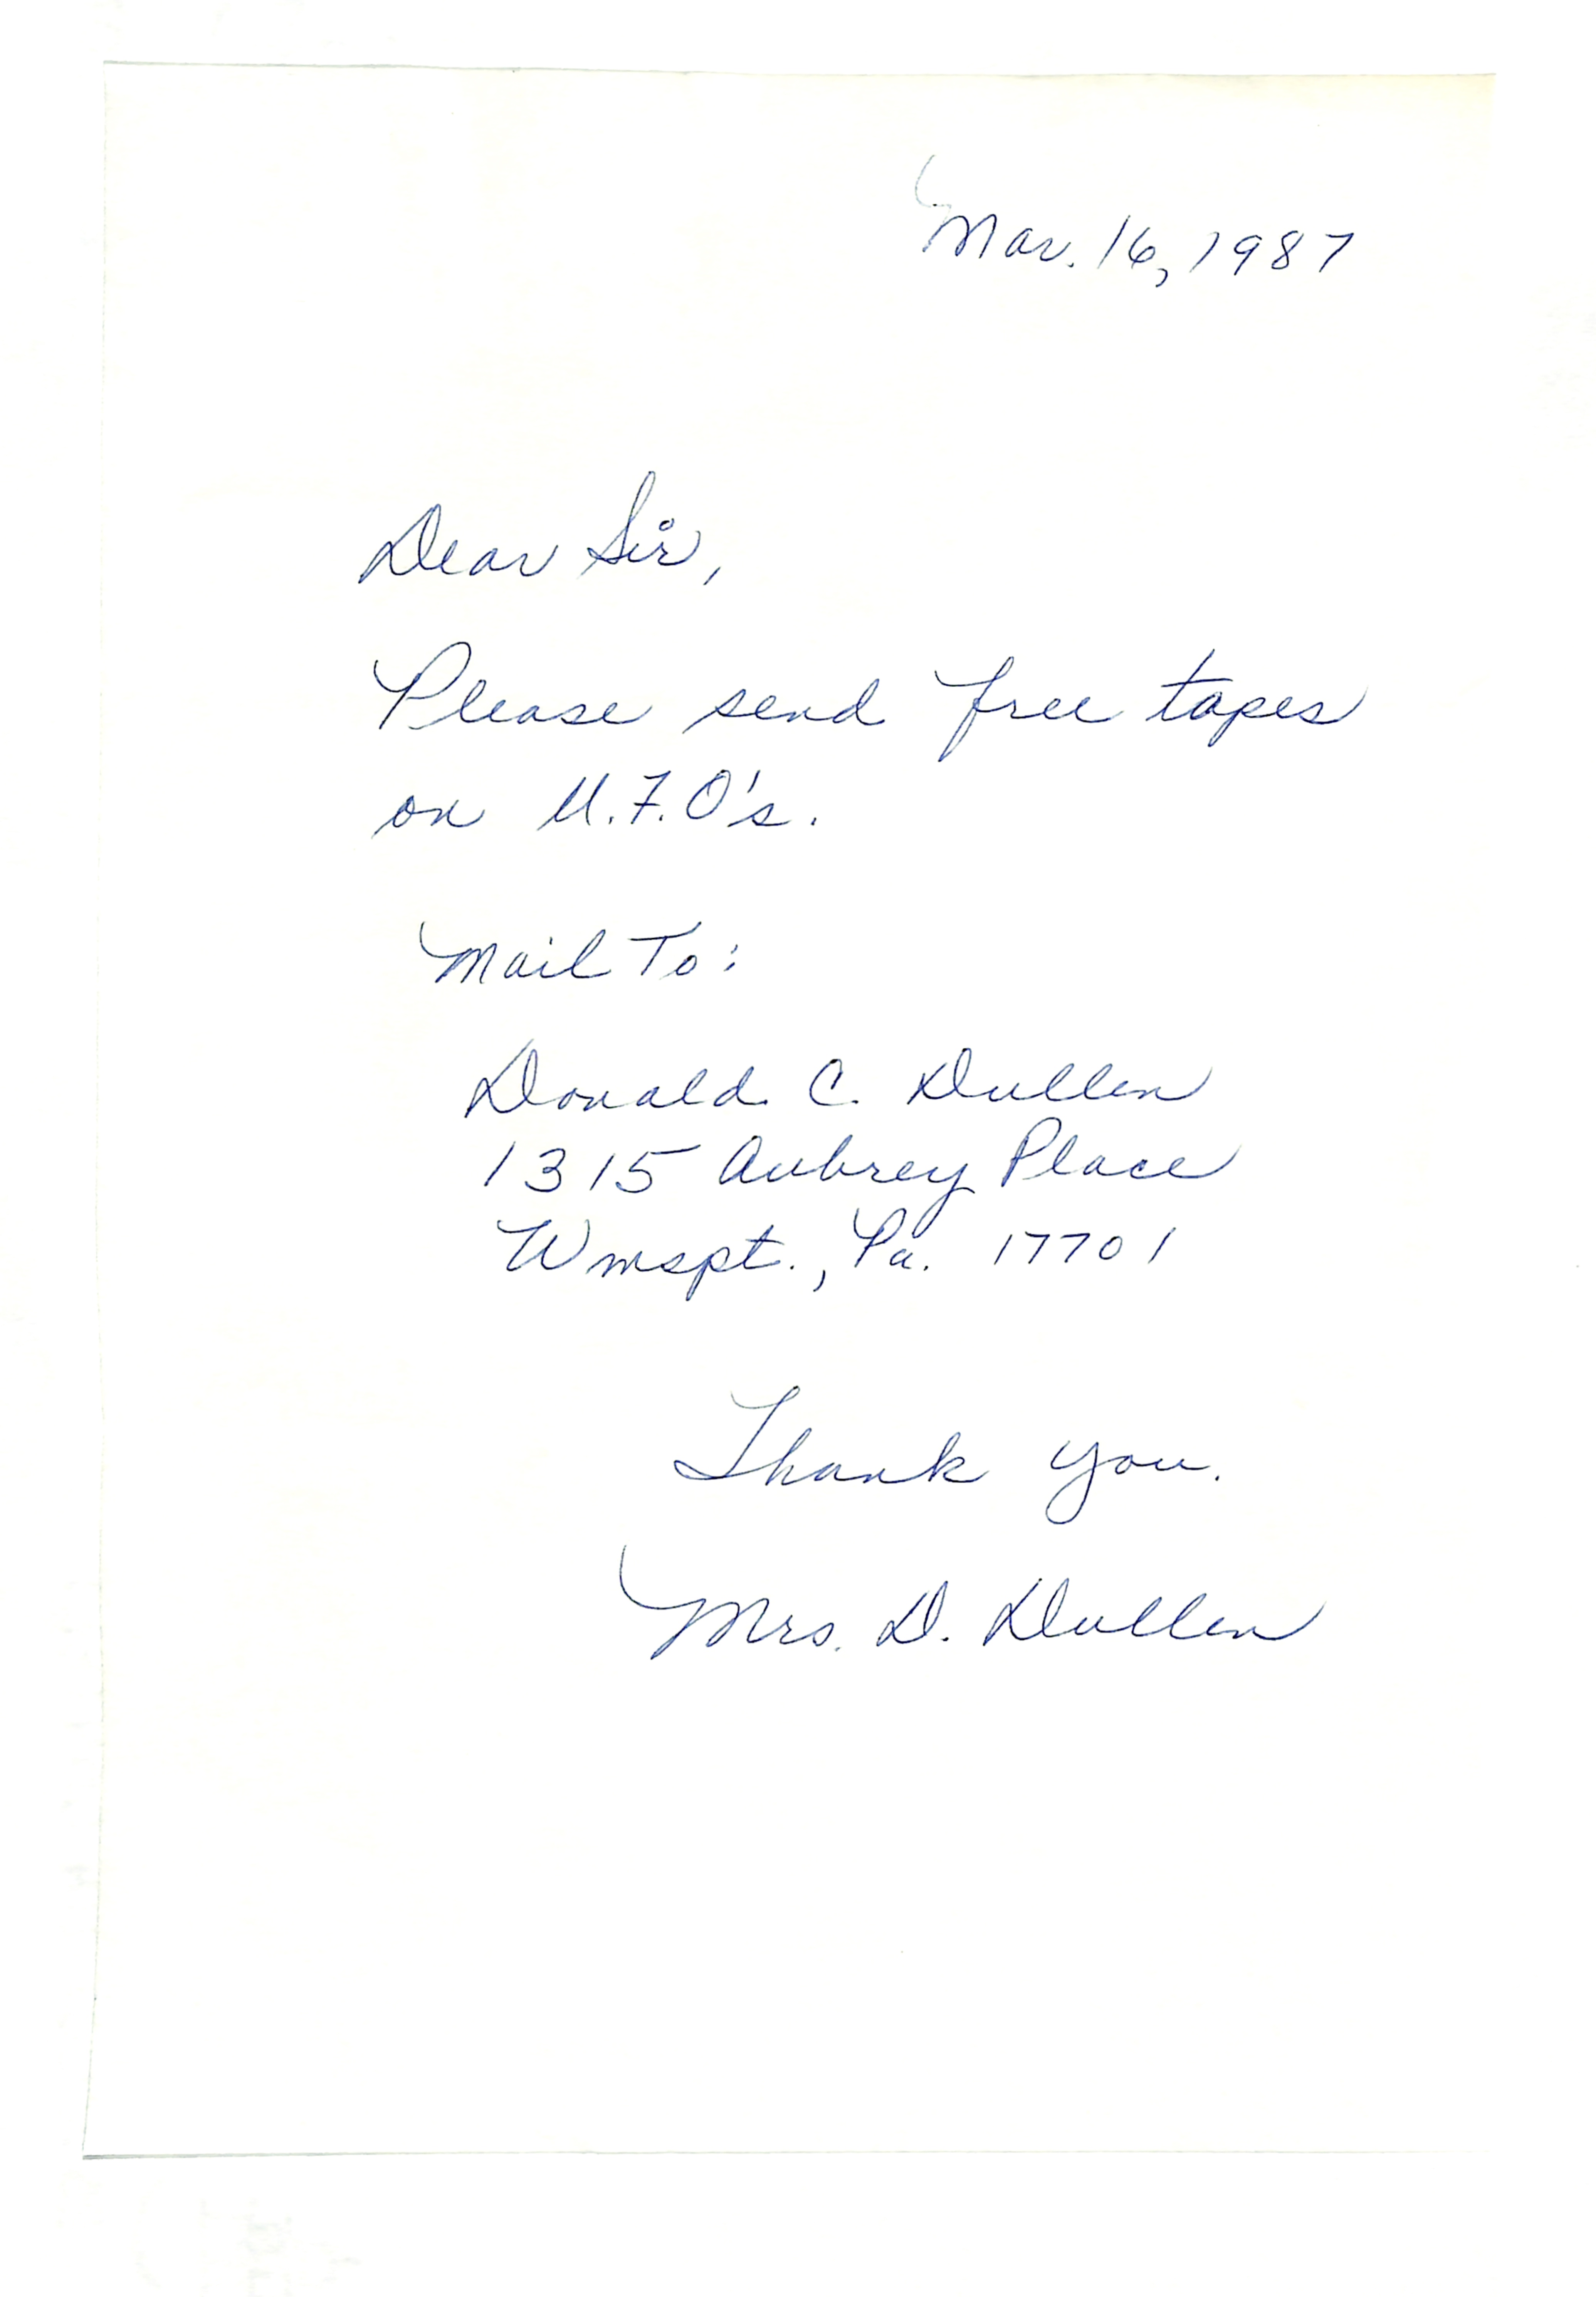 Mar. 16, 1987
Dear Sir,
Please send free tapes
on U.F.O's.
Mail To:
Donald C. Dullen
1315 Aubrey Place
Wmspt., Pa. 17701
Thank you.
Mrs. D. Dullen